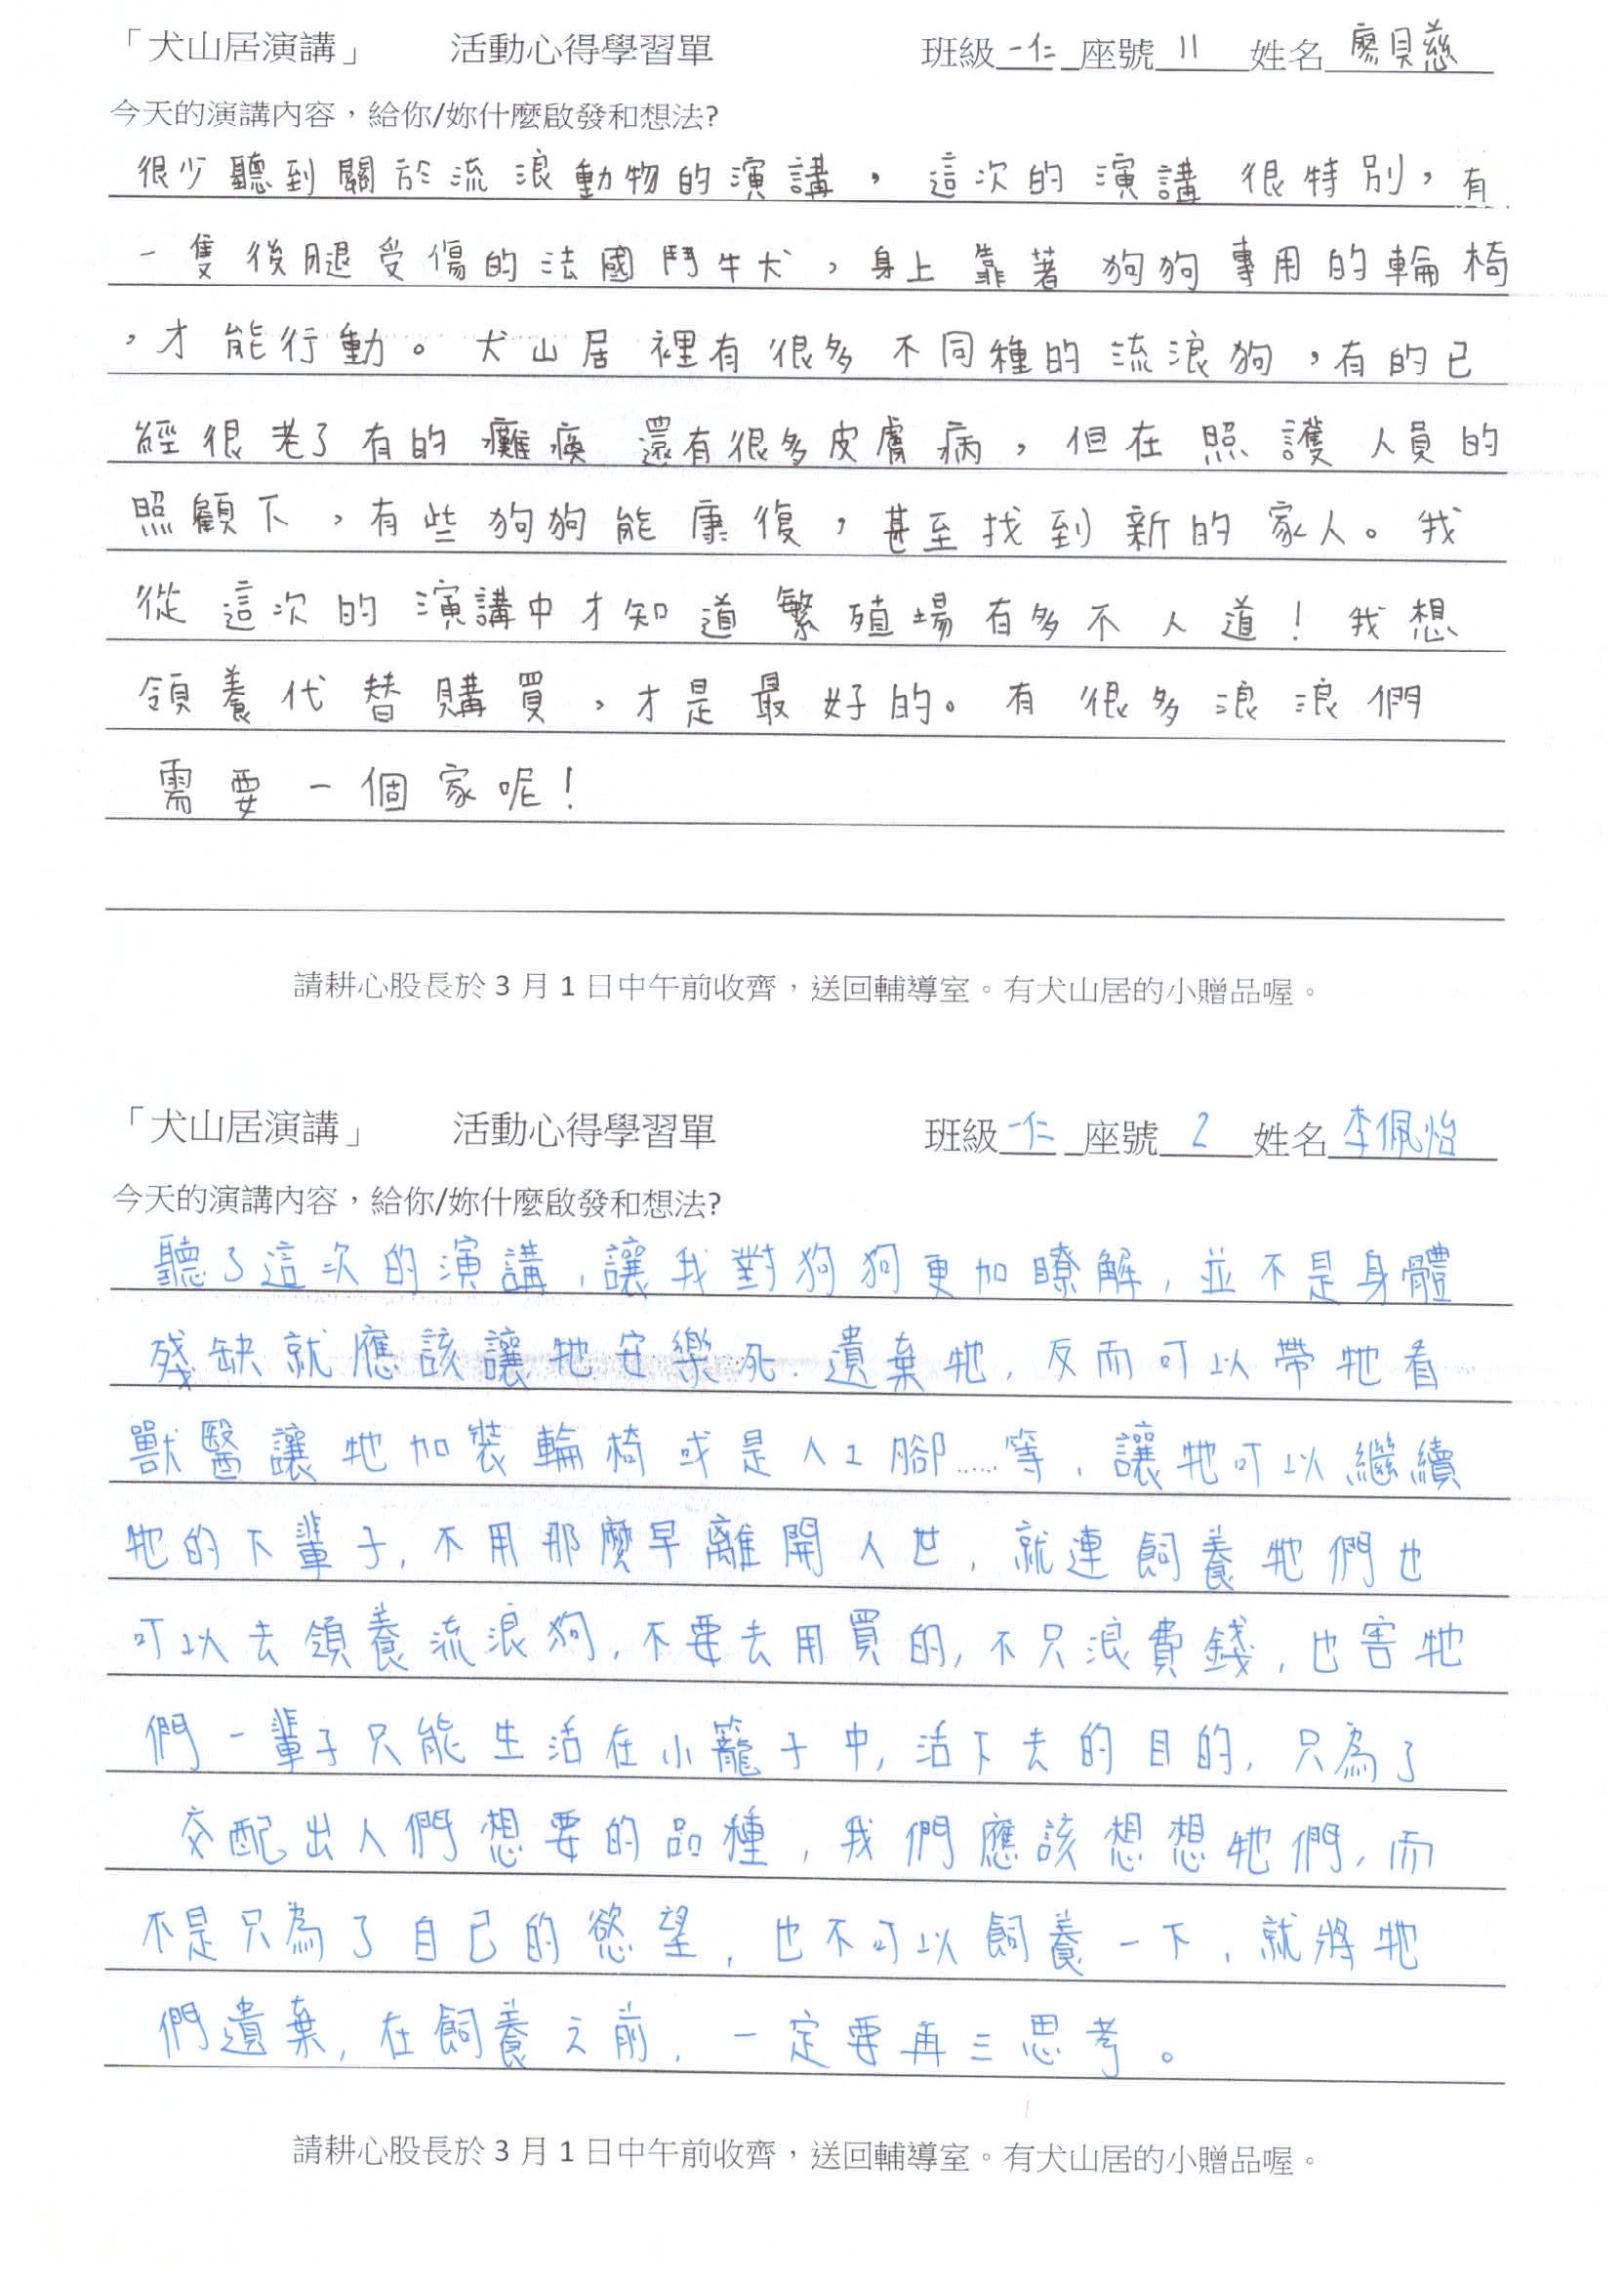 「犬山居演講」 活動心得學習單 班級一仁 座號 11 姓名 廖貝慈
今天的演講內容，給你/妳什麼啟發和想法?
很少聽到關於流浪動物的演講，這次的演講很特別，有
一隻後腿受傷的法國鬥牛犬，身上靠著狗狗專用的輪椅
，才能行動。犬山居裡有很多不同種的流浪狗，有的已
經很老了有的癱瘓還有很多皮膚病，但在照護人員的
照顧下，有些狗狗能康復，甚至找到新的家人。我
從這次的演講中才知道繁殖場有多不人道！我想
領養代替購買，才是最好的。有很多浪浪們
需要一個家呢！
請耕心股長於 3 月 1 日中午前收齊，送回輔導室。有犬山居的小贈品喔。
「犬山居演講」 活動心得學習單 班級一仁 座號 2 姓名 李佩怡
今天的演講內容，給你/妳什麼啟發和想法?
聽了這次的演講，讓我對狗狗更加瞭解，並不是身體
殘缺就應該讓牠安樂死．遺棄牠，反而可以帶牠看
獸醫讓牠加裝輪椅或是人工腳……等，讓牠可以繼續
牠的下輩子，不用那麼早離開人世，就連飼養牠們也
可以去領養流浪狗，不要去用買的，不只浪費錢，也害牠
們一輩子只能生活在小籠子中，活下去的目的，只為了
交配出人們想要的品種，我們應該想想牠們，而
不是只為了自己的慾望，也不可以飼養一下，就將牠
們遺棄，在飼養之前，一定要再三思考。
請耕心股長於 3 月 1 日中午前收齊，送回輔導室。有犬山居的小贈品喔。